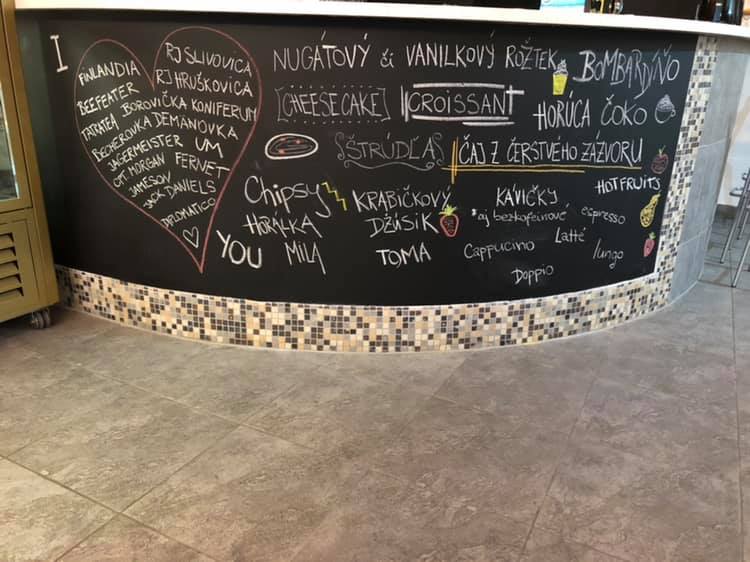 I
FINLANDIA
BEEFEATER
TATRATEA
BECHEROVKA
JÄGERMEISTER
CPT. MORGAN
JAMESON
JACK DANIELS
DIPLOMATICO
RJ SLIVOVICA
RJ HRUŠKOVICA
BOROVIČKA KONIFERUM
DEMÄNOVKA
UM
FERNET
YOU
NUGÁTOVÝ či VANILKOVÝ ROŽTEK
BOMBARDÍŇO
CHEESECAKE
CROISSANT
HORÚCA ČOKO
ŠTRÚDĽA
ČAJ Z ČERSTVÉHO ZÁZVORU
HOT FRUITS
Chipsy
HORALKA
MILA
KRABIČKOVÝ
DŽÚSIK
TOMA
KÁVIČKY
*aj bezkofeinové
espresso
Cappucino
Latté
lungo
Doppio